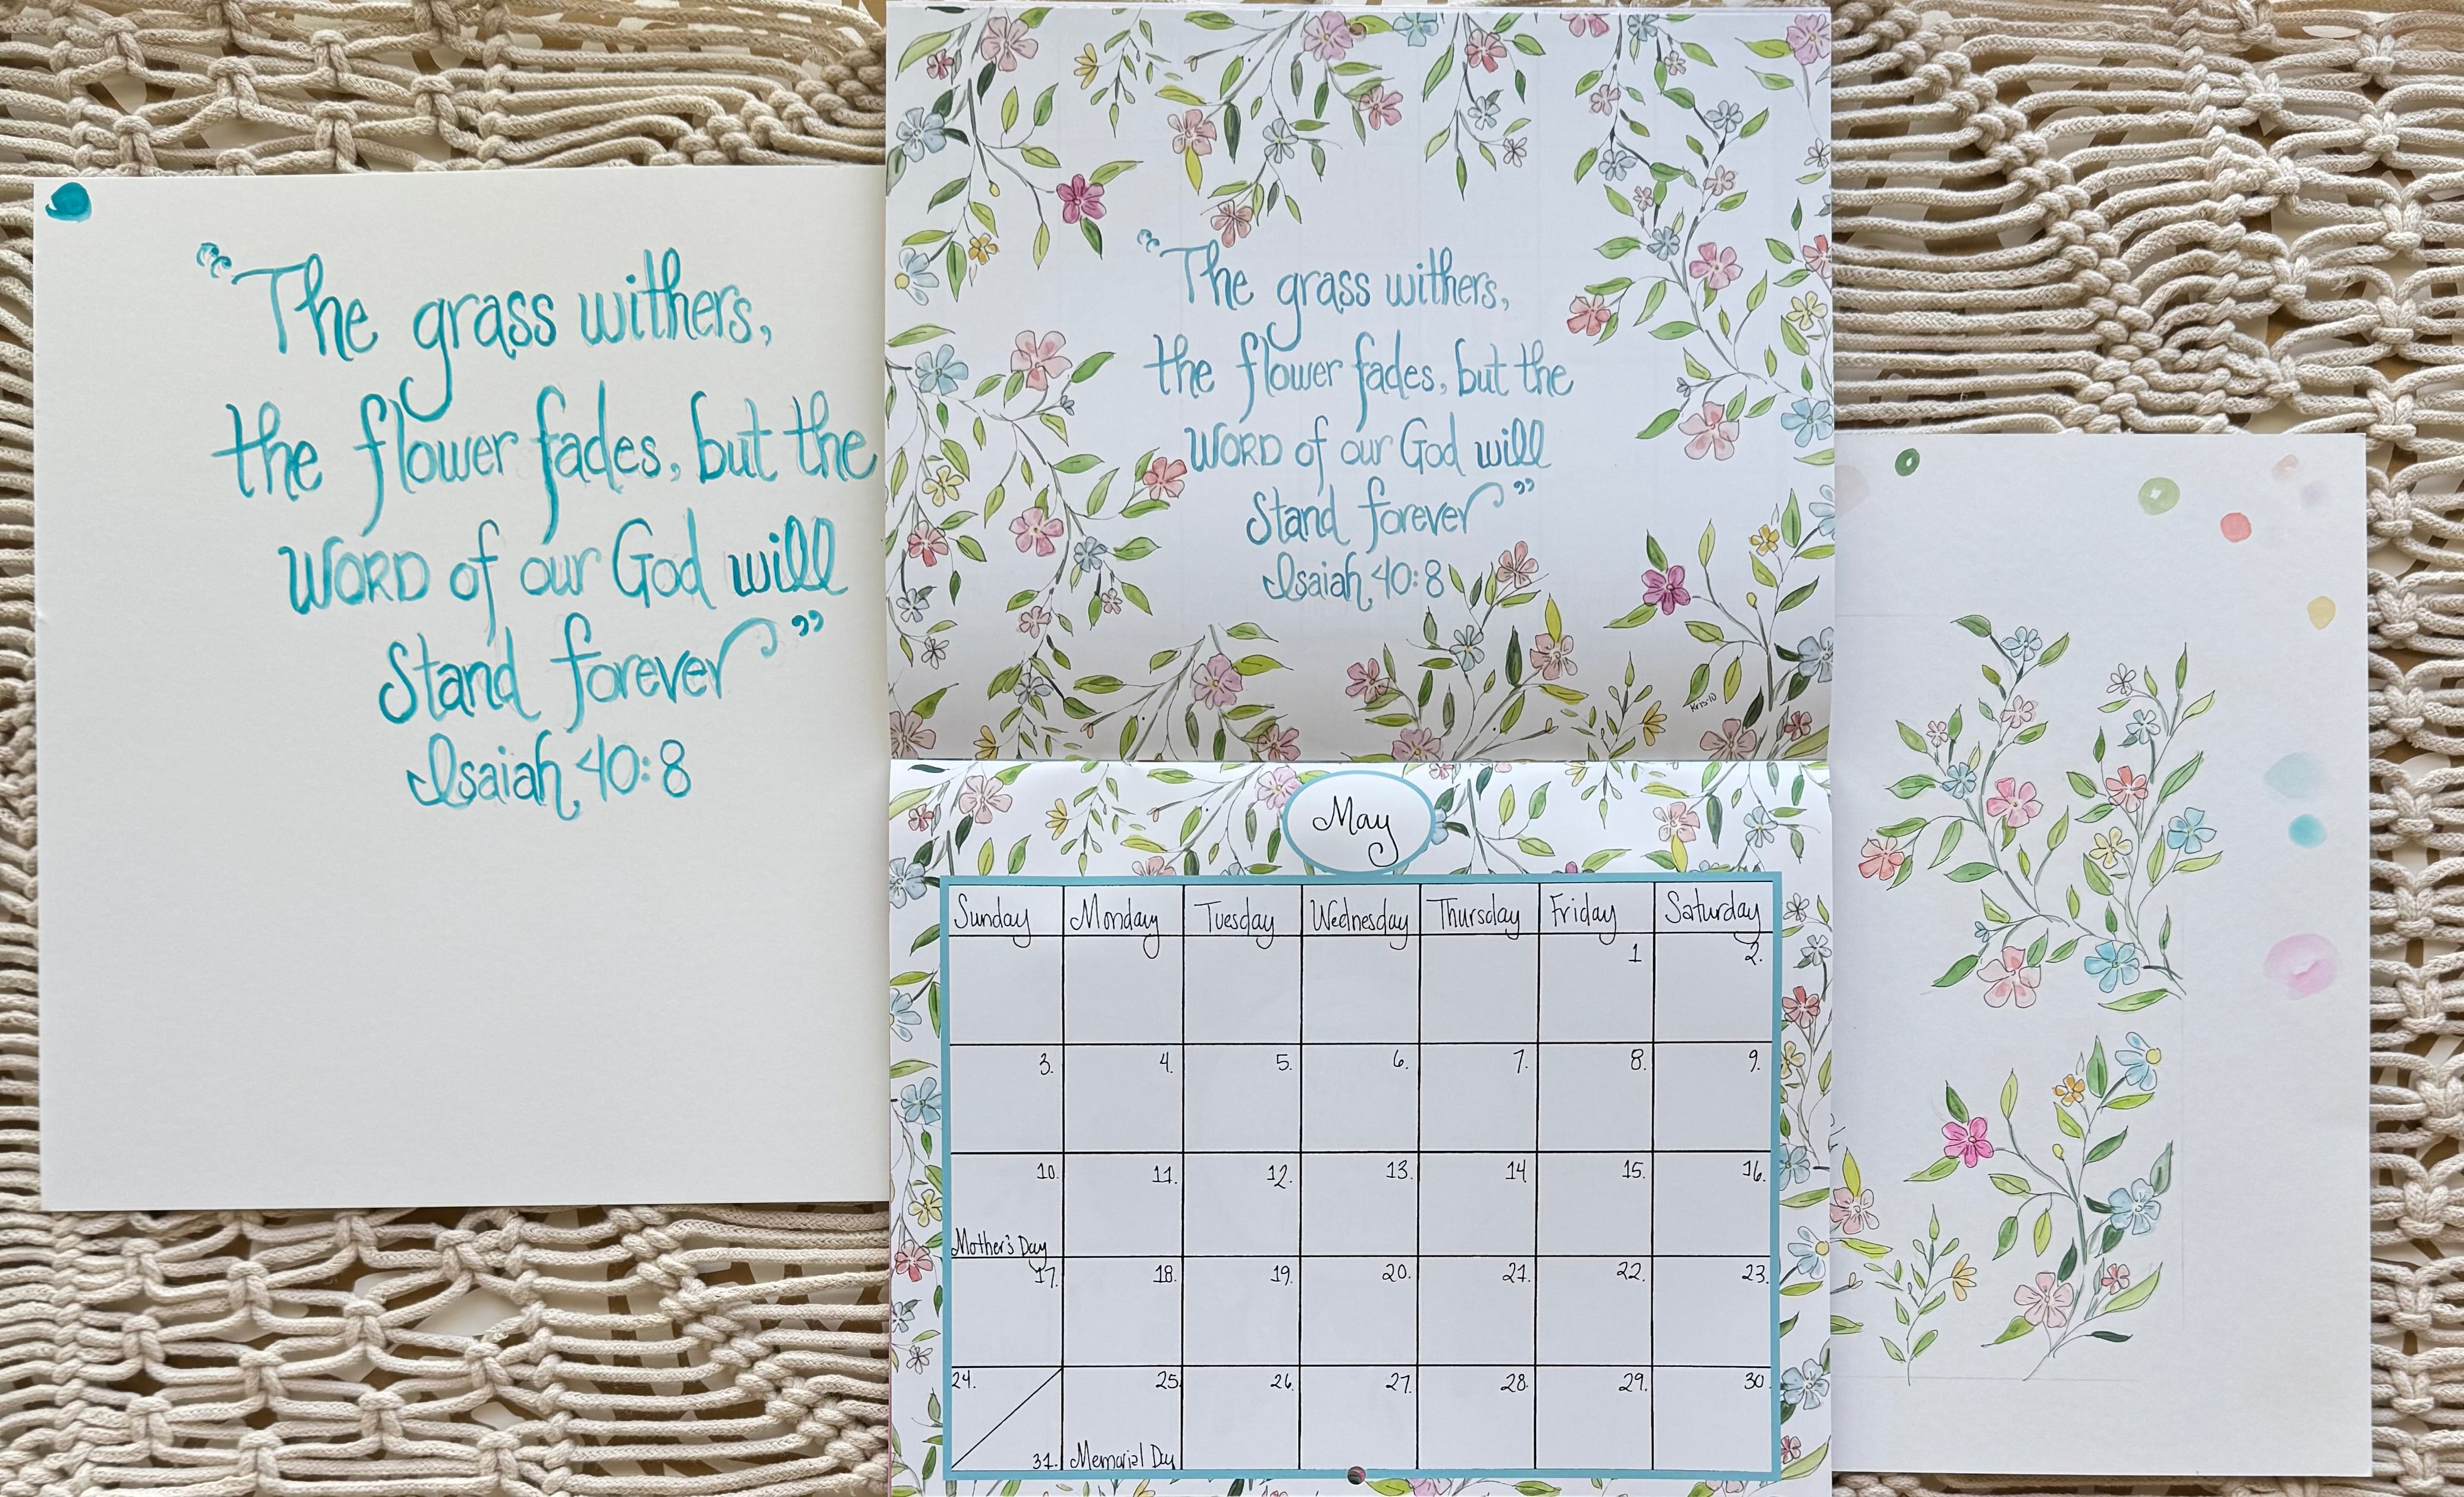 "The grass withers,
the flower fades, but the
WORD of our God will
Stand forever"
Isaiah 40:8
"The grass withers,
the flower fades, but the
WORD of our God will
Stand forever"
Isaiah 40:8
May
Sunday Monday Tuesday Wednesday Thursday Friday Saturday
1 2.
3. 4. 5. 6. 7. 8. 9.
10. 11. 12. 13. 14 15. 16.
Mother's Day
17. 18. 19. 20. 21. 22. 23.
24. 25. 26. 27. 28. 29. 30.
31. Memorial Day